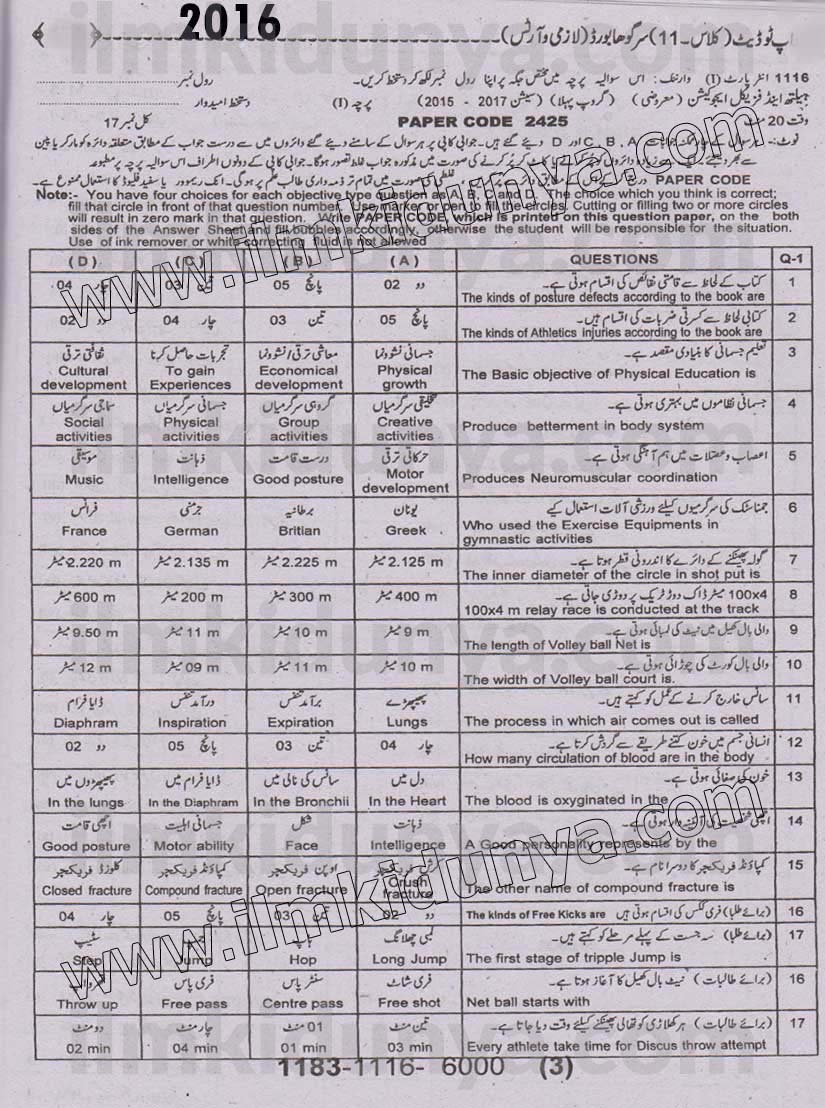 2016
اپ ٹو ڈیٹ (کلاس۔11) سرگودھا بورڈ (لازمی و آرٹس)
1116 انٹر پارٹ (I) وارننگ: اس سوالیہ پرچہ میں مختص جگہ پر اپنا رول نمبر لکھ کر دستخط کریں۔ رول نمبر
ہیلتھ اینڈ فزیکل ایجوکیشن (معروضی) (گروپ پہلا) (سیشن 2017 - 2015) پرچہ (I) دستخط امیدوار
وقت 20 منٹ PAPER CODE 2425 کل نمبر 17
PAPER CODE
Note:- You have four choices for each objective type question as A, B, C and D. The choice which you think is correct;
fill that circle in front of that question number. Use marker or pen to fill the circles. Cutting or filling two or more circles
will result in zero mark in that question. Write PAPER CODE, which is printed on this question paper, on the both
sides of the Answer Sheet and fill bubbles accordingly, otherwise the student will be responsible for the situation.
Use of ink remover or white correcting fluid is not allowed
(D) (C) (B) (A) QUESTIONS Q-1
چار 04 تین 03 پانچ 05 دو 02 کتاب کے لحاظ سے قامتی نقائص کی اقسام ہوتی ہے۔ 1
The kinds of posture defects according to the book are
دو 02 چار 04 تین 03 پانچ 05 کتابی لحاظ سے کسرتی ضربات کی اقسام ہیں۔ 2
The kinds of Athletics Injuries according to the book are
ثقافتی ترقی تجربات حاصل کرنا معاشی ترقی/نشوونما جسمانی نشوونما تعلیم جسمانی کا بنیادی مقصد ہے۔ 3
Cultural development To gain Experiences Economical development Physical growth The Basic objective of Physical Education is
سماجی سرگرمیاں جسمانی سرگرمیاں گروہی سرگرمیاں تخلیقی سرگرمیاں جسمانی نظاموں میں بہتری ہوتی ہے۔ 4
Social activities Physical activities Group activities Creative activities Produce betterment in body system
موسیقی ذہانت درست قامت حرکاتی ترقی اعصاب و عضلات میں ہم آہنگی ہوتی ہے۔ 5
Music Intelligence Good posture Motor development Produces Neuromuscular coordination
فرانس جرمنی برطانیہ یونان جمناسٹک کی سرگرمیوں کیلئے ورزشی آلات استعمال کیے 6
France German Britian Greek Who used the Exercise Equipments in gymnastic activities
2.220 m میٹر 2.135 m میٹر 2.225 m میٹر 2.125 m میٹر گولہ پھینکنے کے دائرے کا اندرونی قطر ہوتا ہے۔ 7
The inner diameter of the circle in shot put is
600 m میٹر 200 m میٹر 300 m میٹر 400 m میٹر 100x4 میٹر ڈاک دوڑ ٹریک پر دوڑی جاتی ہے۔ 8
100x4 m relay race is conducted at the track
9.50 m میٹر 11 m میٹر 10 m میٹر 9 m میٹر والی بال کھیل میں نیٹ کی لمبائی ہوتی ہے۔ 9
The length of Volley ball Net is
12 m میٹر 09 m میٹر 11 m میٹر 10 m میٹر والی بال کورٹ کی چوڑائی ہوتی ہے۔ 10
The width of Volley ball court is.
ڈایا فرام درآمد تنفس برآمد تنفس پھیپھڑے سانس خارج کرنے کے عمل کو کہتے ہیں۔ 11
Diaphram Inspiration Expiration Lungs The process in which air comes out is called
دو 02 پانچ 05 تین 03 چار 04 انسانی جسم میں خون کتنے طریقے سے گردش کرتا ہے۔ 12
How many circulation of blood are in the body
پھیپھڑوں میں ڈایا فرام میں سانس کی نالی میں دل میں خون کی صفائی ہوتی ہے۔ 13
In the lungs In the Diaphram In the Bronchii In the Heart The blood is oxyginated in the
اچھی قامت جسمانی اہلیت شکل ذہانت اچھی شخصیت کی آئینہ دار ہوتی ہے۔ 14
Good posture Motor ability Face Intelligence A Good personality represents by the
کلوزڈ فریکچر کمپاؤنڈ فریکچر اوپن فریکچر کرش فریکچر کمپاؤنڈ فریکچر کا دوسرا نام ہے۔ 15
Closed fracture Compound fracture Open fracture Crush fracture The other name of compound fracture is
چار 04 پانچ 05 تین 03 دو 02 The kinds of Free Kicks are (برائے طلبا) فری ککس کی اقسام ہوتی ہیں 16
سٹیپ جمپ ہاپ لمبی چھلانگ (برائے طلبا) سہ جست کے پہلے مرحلے کو کہتے ہیں۔ 17
Step Jump Hop Long Jump The first stage of tripple Jump is
فری پاس سنٹر پاس فری شاٹ (برائے طالبات) نیٹ بال کھیل کا آغاز ہوتا ہے۔ 16
Throw up Free pass Centre pass Free shot Net ball starts with
دو منٹ چار منٹ 01 منٹ تین منٹ (برائے طالبات) ہر کھلاڑی کو تھالی پھینکنے کیلئے وقت دیا جاتا ہے۔ 17
02 min 04 min 01 min 03 min Every athlete take time for Discus throw attempt
1183-1116- 6000 (3)
www.ilmkidunya.com
www.ilmkidunya.com
ilmkidunya.com